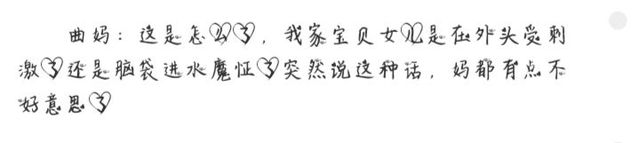 曲妈：这是怎么了，我家宝贝女儿是在外头受刺
激了还是脑袋进水魔怔了突然说这种话，妈都有点不
好意思了